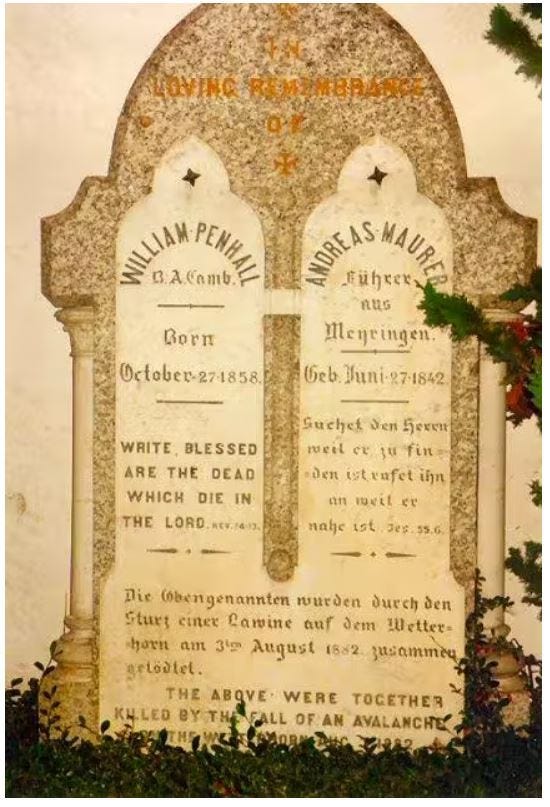 IN
LOVING REMEMBRANCE
OF
WILLIAM·PENHALL
B.A.Camb.
Born
October·27·1858.
WRITE, BLESSED
ARE THE DEAD
WHICH DIE IN
THE LORD. REV. 14·13.
ANDREAS·MAURER
Führer
aus
Meyringen.
Geb. Juni·27·1842.
Suchet den Herrn
weil er zu fin=
=den ist rufet ihn
an weil er
nahe ist. Jes. 55.6.
Die Obengenannten wurden durch den
Sturz einer Lawine auf dem Wetter=
=horn am 3ten August 1882. zusammen
getödtet.
THE ABOVE WERE TOGETHER
KILLED BY THE FALL OF AN AVALANCHE
THE AUG 1882